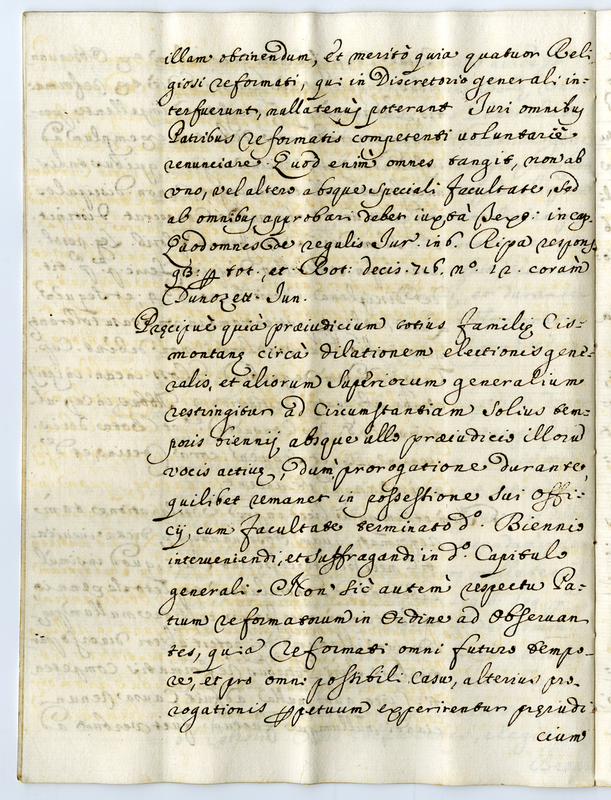 illam obtinendum, et meritò quia quatuor Reli-
giosi reformati, qui in Discretorio generali in-
terfuerunt, nullatenus poterant Juri omnibus
Patribus reformatis competenti voluntariè
renunciare. Quod enim omnes tangit, non ab
uno, vel altero absque speciali facultate, sed
ab omnibus approbari debet iuxtà Text: in cap.
Quod omnes de regulis Jur. in 6. Ripa respons.
tot. et Rot: decis. 716. n.º 12. coràm
Dunozett. Jun.
Pręcipuè quià præiudicium totius familię Cis-
montanę circà dilationem electionis gene-
ralis, et aliorum Superiorum generalium
restringitur ad circumstantiam solius tem-
poris biennij absque ullo præiudicio illorũ
vocis activę, dum prorogatione durante
quilibet remanet in possessione sui offi-
cij, cum facultate terminato d.º Biennio
interveniendi, et suffragandi in d.º Capitulo
generali. Non sic autem respectu Pa-
trum reformatorum in ordine ad Observan
tes, quia reformati omni futuro tempo-
re, et pro omni possibili casu, alterius pro-
rogationis perpetuum experirentur pręiudi
cium